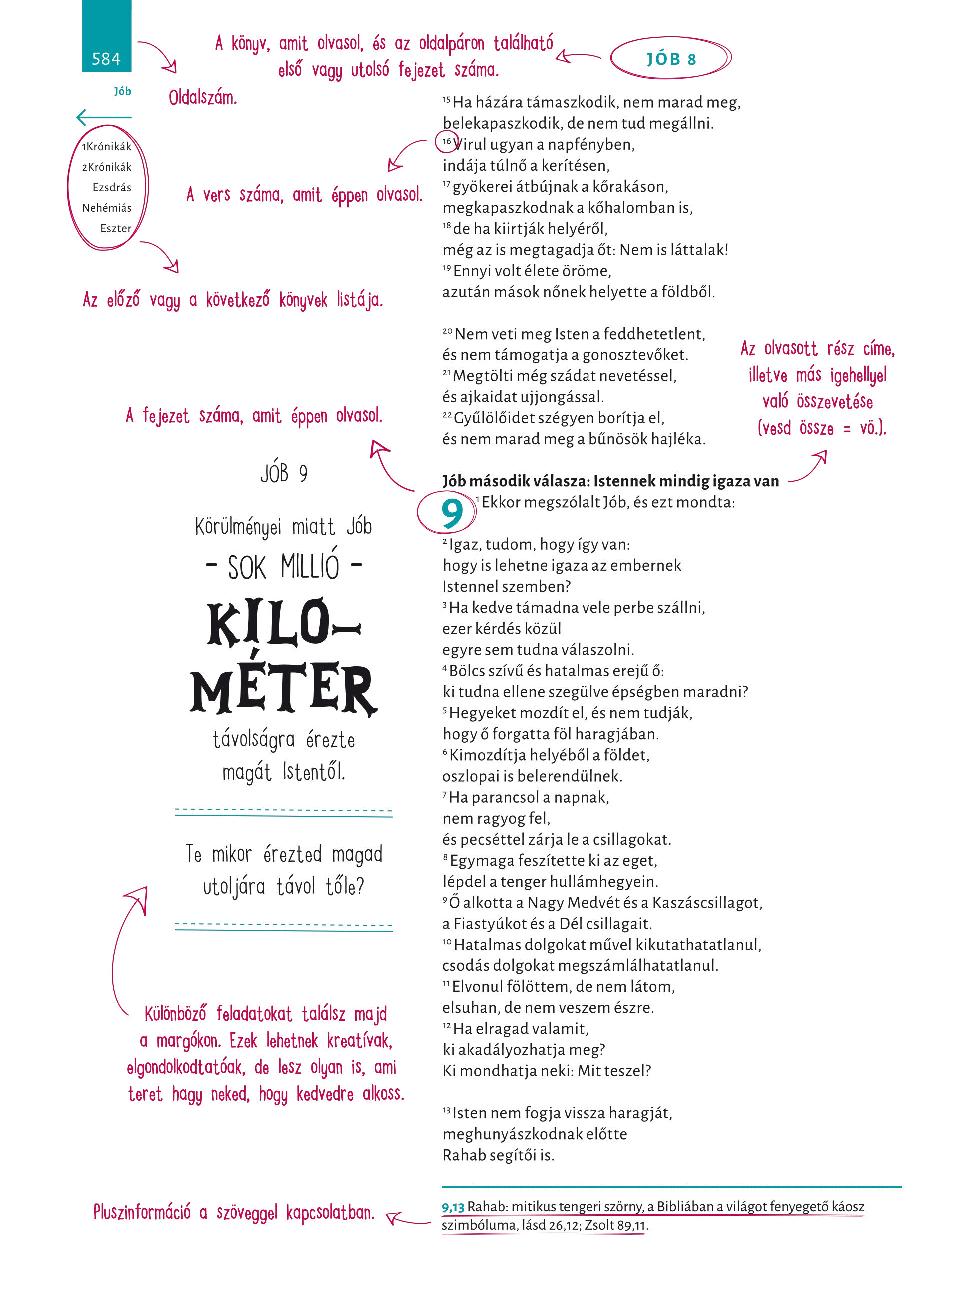 584
Jób
1Krónikák
2Krónikák
Ezsdrás
Nehémiás
Eszter
A könyv, amit olvasol, és az oldalpáron található
első vagy utolsó fejezet száma.
JÓB 8
Oldalszám.
A vers száma, amit éppen olvasol.
Az előző vagy a következő könyvek listája.
15 Ha házára támaszkodik, nem marad meg,
belekapaszkodik, de nem tud megállni.
16 Virul ugyan a napfényben,
indája túlnő a kerítésen,
17 gyökerei átbújnak a kőrakáson,
megkapaszkodnak a kőhalomban is,
18 de ha kiirtják helyéről,
még az is megtagadja őt: Nem is láttalak!
19 Ennyi volt élete öröme,
azután mások nőnek helyette a földből.
20 Nem veti meg Isten a feddhetetlent,
és nem támogatja a gonosztevőket.
21 Megtölti még szádat nevetéssel,
és ajkaidat ujjongással.
22 Gyűlölőidet szégyen borítja el,
és nem marad meg a bűnösök hajléka.
Az olvasott rész címe,
illetve más igehellyel
való összevetése
(vesd össze = vö.).
A fejezet száma, amit éppen olvasol.
Jób második válasza: Istennek mindig igaza van
9 1 Ekkor megszólalt Jób, és ezt mondta:
2 Igaz, tudom, hogy így van:
hogy is lehetne igaza az embernek
Istennel szemben?
3 Ha kedve támadna vele perbe szállni,
ezer kérdés közül
egyre sem tudna válaszolni.
4 Bölcs szívű és hatalmas erejű ő:
ki tudna ellene szegülve épségben maradni?
5 Hegyeket mozdít el, és nem tudják,
hogy ő forgatta föl haragjában.
6 Kimozdítja helyéből a földet,
oszlopai is belerendülnek.
7 Ha parancsol a napnak,
nem ragyog fel,
és pecséttel zárja le a csillagokat.
8 Egymaga feszítette ki az eget,
lépdel a tenger hullámhegyein.
9 Ő alkotta a Nagy Medvét és a Kaszáscsillagot,
a Fiastyúkot és a Dél csillagait.
10 Hatalmas dolgokat művel kikutathatatlanul,
csodás dolgokat megszámlálhatatlanul.
11 Elvonul fölöttem, de nem látom,
elsuhan, de nem veszem észre.
12 Ha elragad valamit,
ki akadályozhatja meg?
Ki mondhatja neki: Mit teszel?
13 Isten nem fogja vissza haragját,
meghunyászkodnak előtte
Rahab segítői is.
JÓB 9
Körülményei miatt Jób
- SOK MILLIÓ -
KILO-
MÉTER
távolságra érezte
magát Istentől.
Te mikor érezted magad
utoljára távol tőle?
Különböző feladatokat találsz majd
a margókon. Ezek lehetnek kreatívak,
elgondolkodtatóak, de lesz olyan is, ami
teret hagy neked, hogy kedvedre alkoss.
Pluszinformáció a szöveggel kapcsolatban.
9,13 Rahab: mitikus tengeri szörny, a Bibliában a világot fenyegető káosz
szimbóluma, lásd 26,12; Zsolt 89,11.